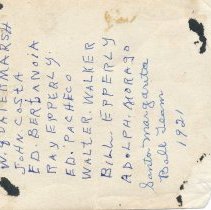 W. QUATERMARSH
JOHN COSTA
ED. BERBANOIA
RAY EPPERLY.
ED. PACHECO
WALTER. WALKER
BILL EPPERLY
ADOLPH. MORAGO
Santa Margarita
Ball Team
1921